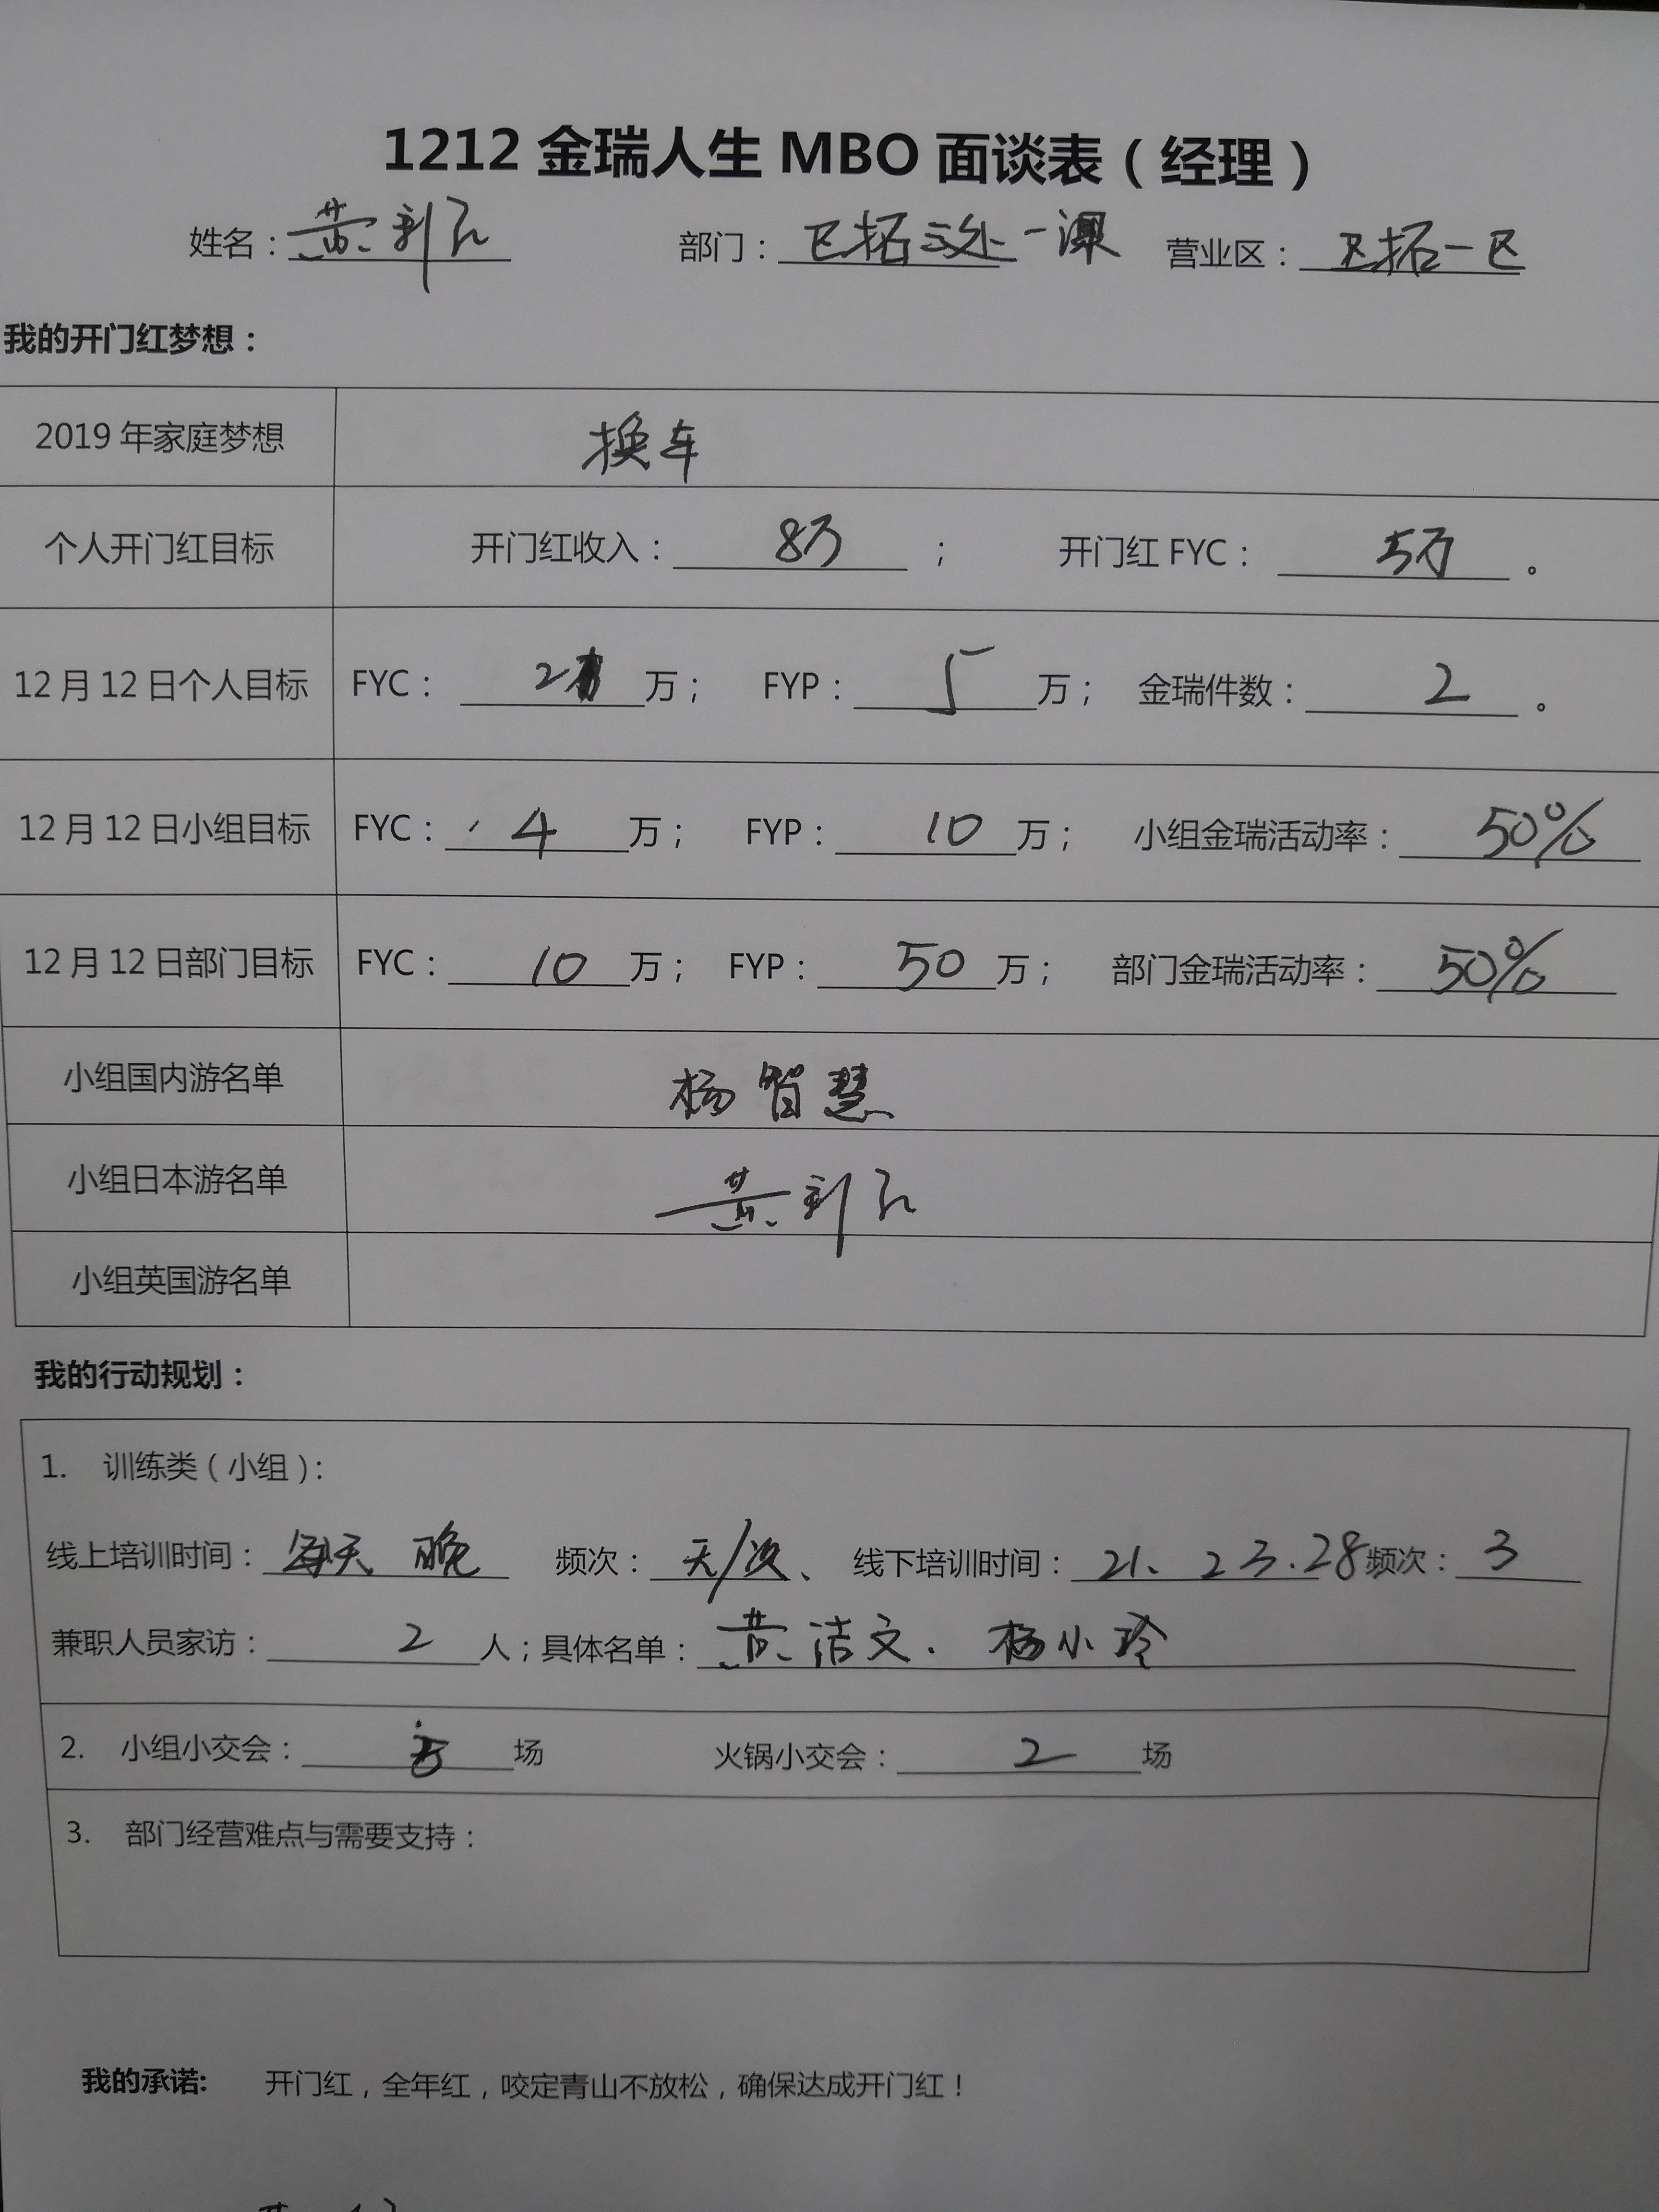 1212 金瑞人生 MBO 面谈表（经理）
姓名：黄利 部门：区拓三处一课 营业区：区拓一区
我的开门红梦想：
2019 年家庭梦想 换车
个人开门红目标 开门红收入：8万； 开门红 FYC：5万。
12 月 12 日个人目标 FYC：2万； FYP：5万； 金瑞件数：2。
12 月 12 日小组目标 FYC：4万； FYP：10万； 小组金瑞活动率：50%
12 月 12 日部门目标 FYC：10万； FYP：50万； 部门金瑞活动率：50%
小组国内游名单 杨智慧
小组日本游名单 黄利
小组英国游名单
我的行动规划：
1. 训练类（小组）：
线上培训时间：每天 晚 频次：天/次、 线下培训时间：21、23.28 频次：3
兼职人员家访：2人；具体名单：黄洁文. 杨小玲
2. 小组小交会：5场 火锅小交会：2场
3. 部门经营难点与需要支持：
我的承诺: 开门红，全年红，咬定青山不放松，确保达成开门红！